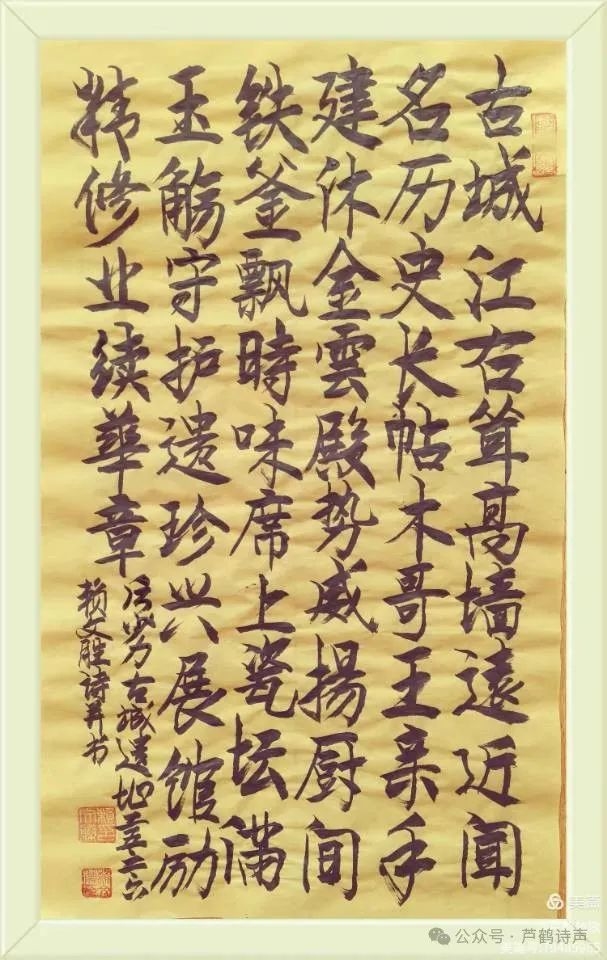 古城江右耸高墙遠近聞
名历史长帖木哥王亲手
建沐金雲殿势威揚厨间
铁釜飘時味席上瓷坛满
玉觞守护遗珍兴展馆励
精修业续華章
古城遗址
赖文胜诗并书
美篇
公众号·芦鹤诗声